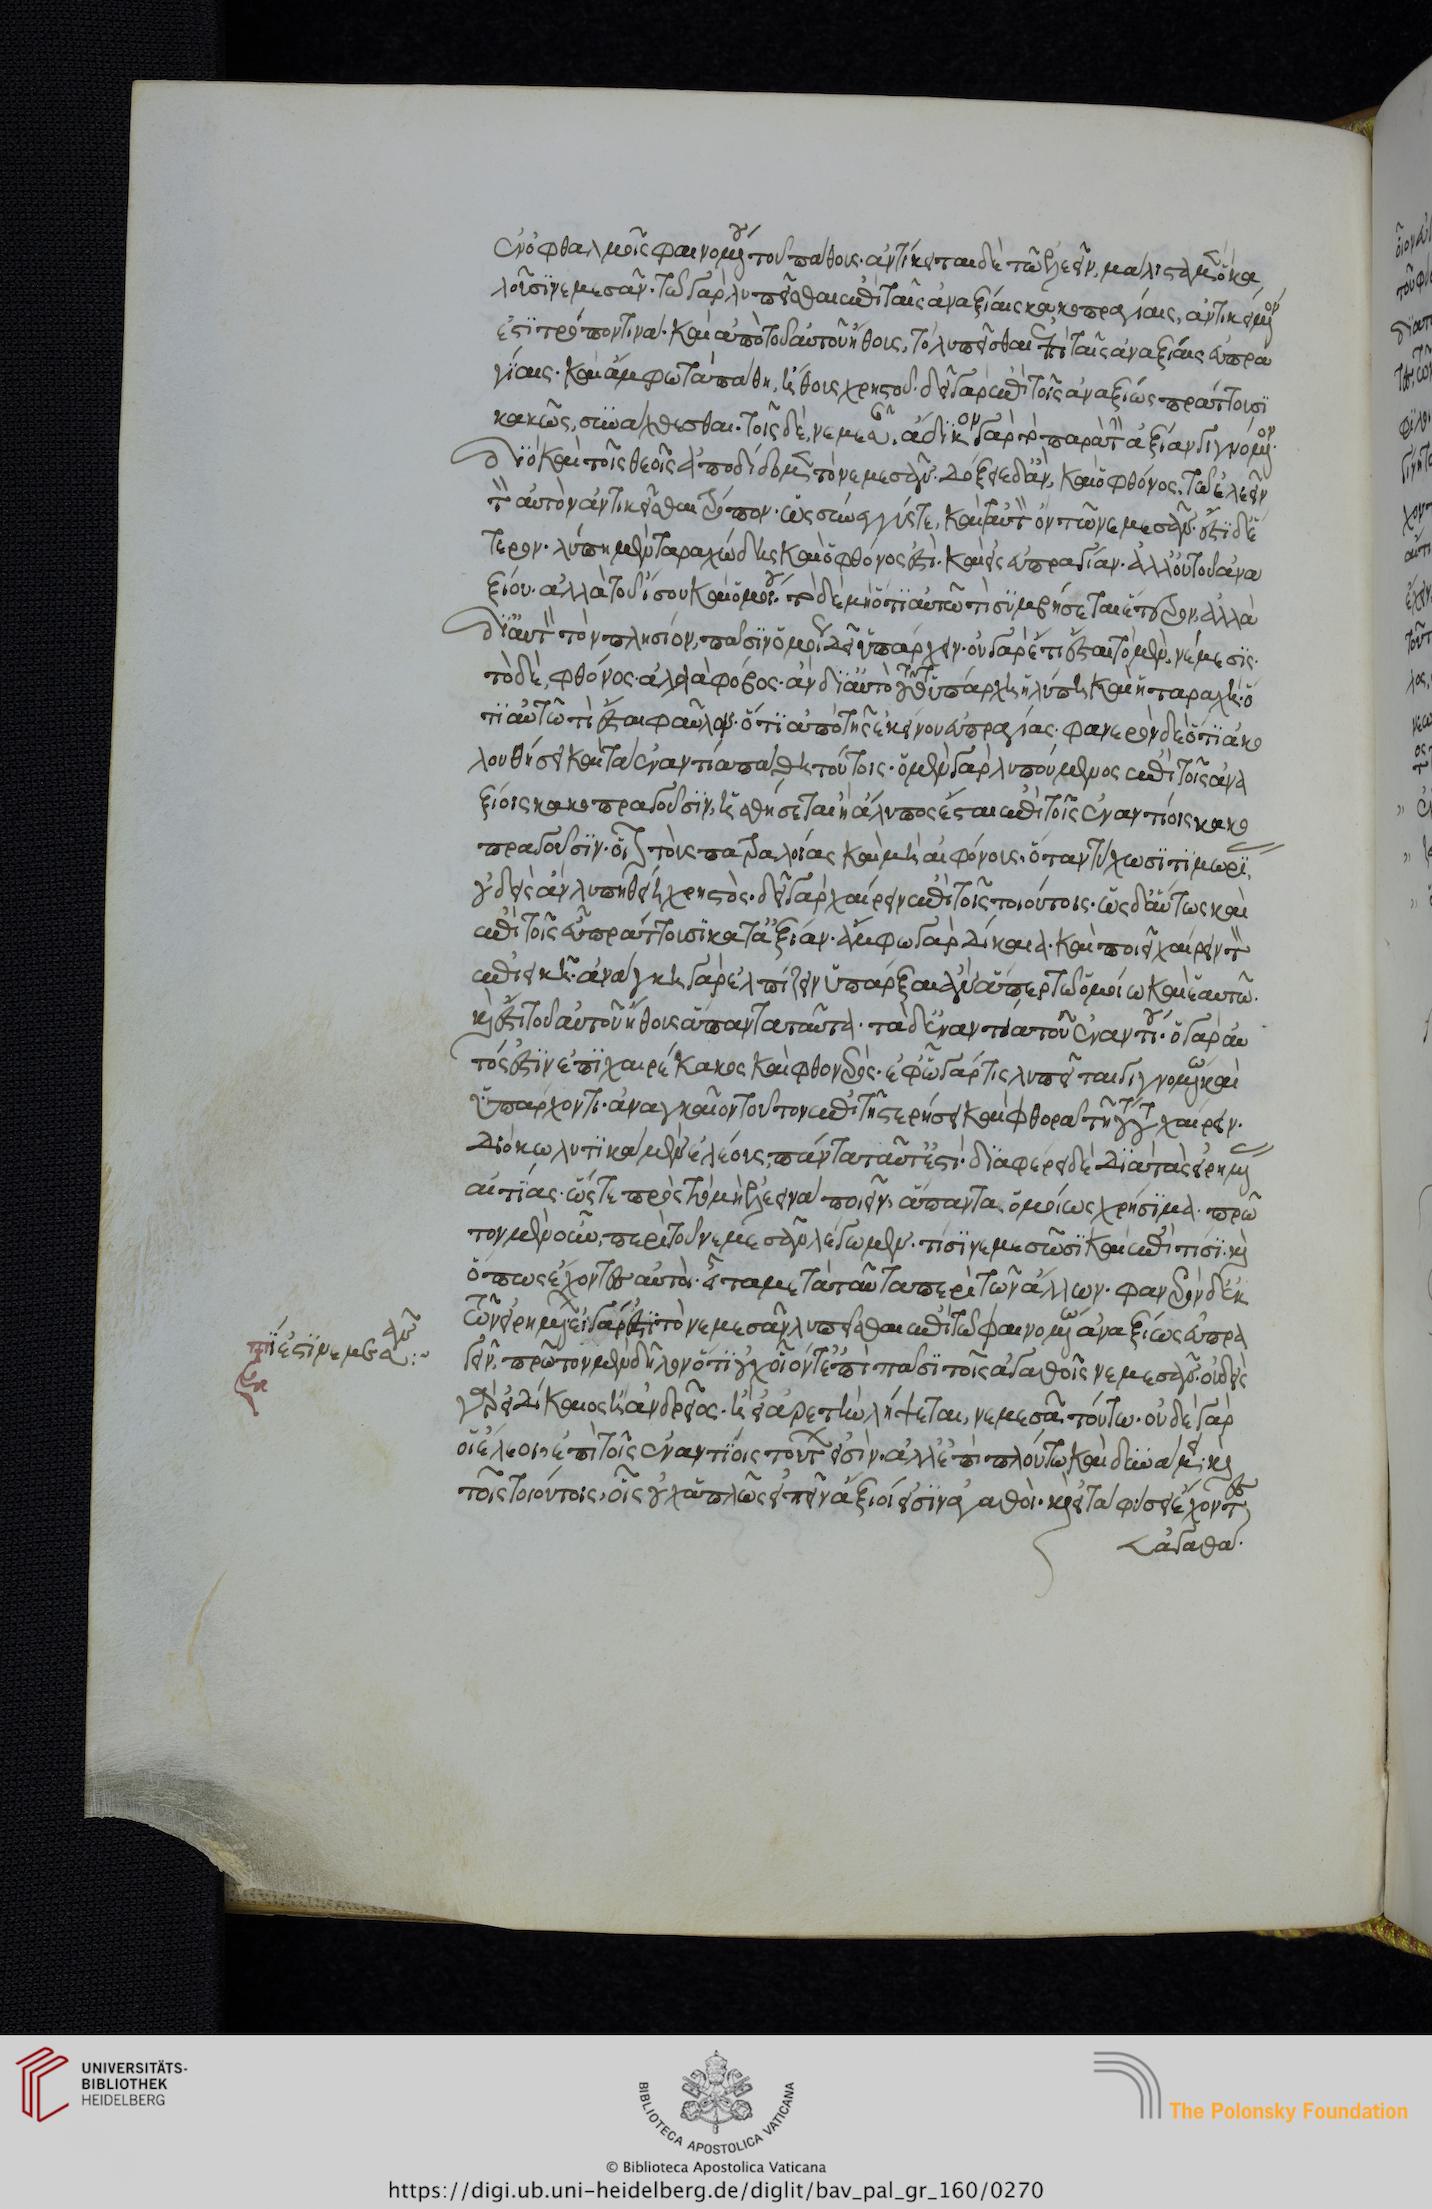 ἐν ὀφθαλμοῖς φαινομένου τοῦ πάθους. ἀντίκειται δὲ τῶ ἐλεεῖν, μάλιστα μὲν ὃ κα
λοῦσϊ νεμεσᾶν. τῶ γὰρ λυπεῖσθαι ἐπὶ ταῖς ἀναξίαις κακοπραγίαις, ἀντικείμενον
ἐστϊ τρόπον τινά. καὶ ἀπὸ τοῦ αὐτοῦ ἤθους, τὸ λυπεῖσθαι ἐπὶ ταῖς ἀναξίαις εὐπρα
γίαις. καὶ ἄμφω τὰ πάθη, ἤθους χρηστοῦ. δεῖ γὰρ ἐπὶ τοῖς ἀναξίως πράττουσϊ
κακῶς, συνάχθεσθαι. τοῖς δὲ, νεμεσᾶν. ἄδϊκον γὰρ τὸ παρὰ τὴν ἀξίαν γιγνόμενον.
διὸ καὶ τοῖς θεοῖς ἀποδίδομεν τὸ νεμεσᾶν. δόξειε δ' ἂν, καὶ ὁ φθόνος, τῶ ἐλεεῖν
τὸν αὐτὸν ἀντικεῖσθαι τρόπον. ὡς σύνεγγύς τε, καὶ ταυτὸν ὂν τῶ νεμεσᾶν. ἔστϊ δ' ἕ
τερον. λύπη μὲν ταραχώδης καὶ ὁ φθόνος ἐστὶ. καὶ εἰς εὐπραγίαν. ἀλλ' οὐ τοῦ ἀνα
ξίου. ἀλλὰ τοῦ ἴσου καὶ ὁμοίου. τὸ δὲ μὴ ὅτϊ αὐτῶ τὶ συμβήσεται ἕτερον, ἀλλὰ
δι' αὐτὸν τὸν πλησίον, πᾶσϊν ὁμοίως δεῖ ὑπάρχειν. οὐ γὰρ ἔτι ἔσται τὸ μὲν, νέμεσϊς.
τὸ δὲ, φθόνος. ἀλλὰ φόβος. ἂν διὰ τοῦτο ὑπάρχη ἡ λύπη καὶ ἡ ταραχὴ. ὅ
τι αὐτῶ τὶ ἔσται φαῦλον. ὅτι ἀπὸ τῆς ἐκείνου εὐπραγίας. φανερὸν δὲ ὅτι ἀκο
λουθήσει καὶ τὰ ἐναντία πάθη τούτοις. ὁ μὲν γὰρ λυπούμενος ἐπὶ τοῖς ἀνα
ξίοις κακοπραγοῦσϊν, ἡσθήσεται ἢ ἄλυπος ἔσται ἐπὶ τοῖς ἐναντίοις κακο
πραγοῦσϊν. οἷον τοὺς πατραλοίας καὶ μιαιφόνους, ὅταν τύχωσϊ τϊμωρί,
οὐδεὶς ἂν λυπηθείη χρηστὸς. δεῖ γὰρ χαίρειν ἐπὶ τοῖς τοιούτοις. ὡς δ' αὕτως καὶ
ἐπὶ τοῖς εὖ πράττουσϊ κατ' ἀξίαν. ἄμφω γὰρ δίκαια. καὶ ποιεῖ χαίρειν τὸν
ἐπιεικῆ. ἀνάγκη γὰρ ἐλπίζειν ὑπάρξαι ἂν ἅπερ τῶ ὁμοίω καὶ ἑαυτῶ.
καὶ ἔστι τοῦ αὐτοῦ ἤθους ἅπαντα ταῦτα. τὰ δ' ἐναντία τοῦ ἐναντίου. ὁ γὰρ αὐ
τός ἐστϊν ἐπϊχαιρέκακος καὶ φθονερός. ἐφ' ᾧ γάρ τις λυπεῖται γιγνομένω καὶ
ὑπάρχοντι. ἀναγκαῖον τοῦτον ἐπὶ τῆ στερήσει καὶ φθορᾶ τῆ τούτου χαίρειν.
διὸ κωλυτϊκὰ μὲν ἐλέους, πάντα ταῦτ' ἐστὶ. διαφέρει δὲ διὰ τὰς εἰρημένας
αἰτίας. ὥστε πρὸς τὸ μὴ ἐλεεινὰ ποιεῖν, ἅπαντα ὁμοίως χρήσϊμα. πρῶ
τον μὲν οὖν, περὶ τοῦ νεμεσᾶν λέγωμεν. τίσϊ νεμεσῶσϊ καὶ ἐπὶ τίσϊ. καὶ
ὅπως ἔχοντες αὐτοὶ. εἶτα μετὰ ταῦτα περὶ τῶν ἄλλων. φανερὸν δ' ἐκ
τῶν εἰρημένων. εἰ γάρ ἐστϊ τὸ νεμεσᾶν λυπεῖσθαι ἐπὶ τῶ φαινομένω ἀναξίως εὐπρα
γεῖν, πρῶτον μὲν δῆλον ὅτϊ οὐχ οἷόν τ' ἐπὶ πᾶσϊ τοῖς ἀγαθοῖς νεμεσᾶν. οὐδεὶς
γὰρ εἰ δίκαιος ἢ ἀνδρεῖος. ἢ εἰ ἀρετὴν λήψεται, νεμεσᾶ τούτω. οὐδὲ γὰρ
οἱ ἔλεοι ἐπὶ τοῖς ἐναντίοις τούτων εἰσὶν. ἀλλ' ἐπὶ πλούτω καὶ δυνάμει. καὶ
τοῖς τοιούτοις, οἷς οὐχ ἁπλῶς εἰπεῖν ἄξιοί εἰσϊν ἀγαθοὶ. καὶ εἰ τὰ φύσει ἔχοντες
ἀγαθὰ.
τί ἐστϊ νεμεσᾶν :~